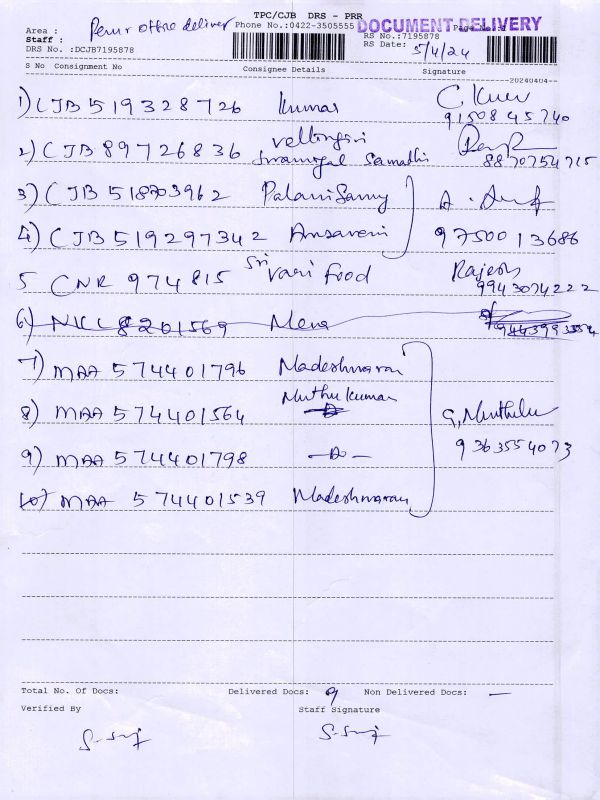 TPC/CJB DRS - PRR
DOCUMENT DELIVERY
Area : Perur office delivery
Phone No.:0422-3505555
Staff :
RS No.:7195878
DRS No. :DCJB7195878
RS Date: 5/4/24
S No Consignment No Consignee Details Signature
20240404--
1) CJB 519328726 Kumar C. Kum
9150845740
2) CJB 89726836 vellingiri
Swamigal Samadhi 8870754715
3) CJB 518703962 PalaniSamy
4) CJB 519297342 Ansaveni 9750013686
5 CNR 974815 Sri Vari Food Rajesh
9943074222
6) NKL 8201569 Mena 9443993554
7) MAA 574401796 Madeshwaran
8) MAA 574401564 Muthu Kumar
G. Muthuku
9) MAA 574401798 -Do-
9363554073
10) MAA 574401539 Madeshwaran
Total No. Of Docs: Delivered Docs: 9 Non Delivered Docs: —
Verified By Staff Signature